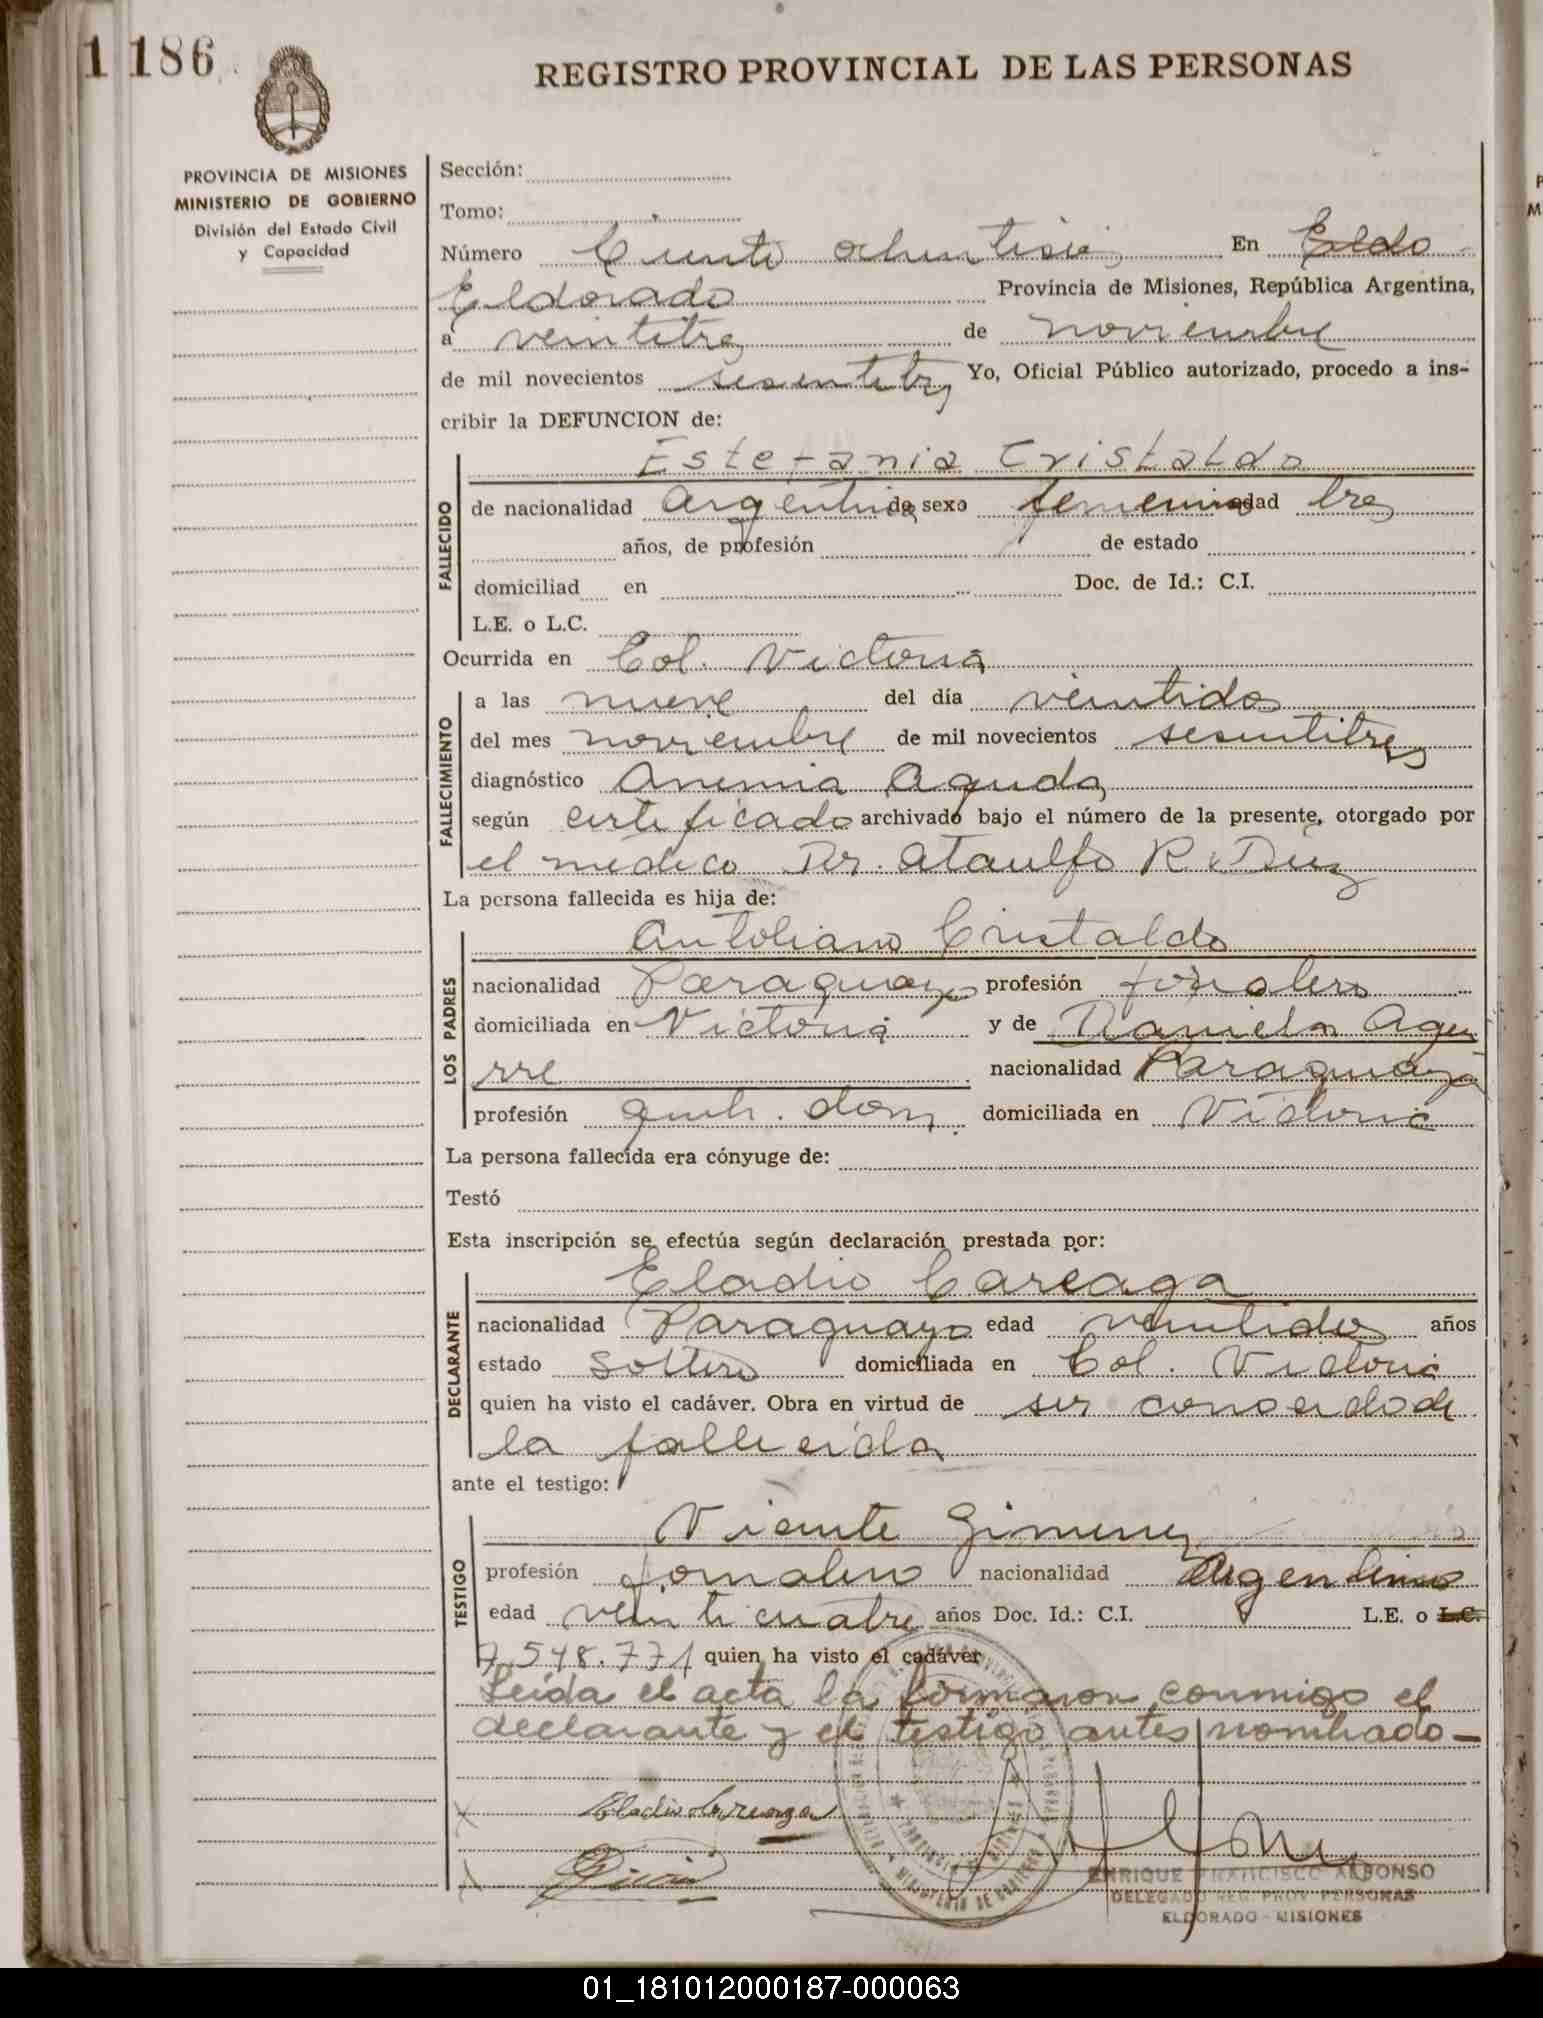 1 186
REGISTRO PROVINCIAL DE LAS PERSONAS
PROVINCIA DE MISIONES
MINISTERIO DE GOBIERNO
División del Estado Civil
y Capacidad
Sección:
Tomo:
Número Ciento ochentiseis En Eldo
Eldorado Provincia de Misiones, República Argentina,
a veintitres de noviembre
de mil novecientos sesentitres Yo, Oficial Público autorizado, procedo a ins-
cribir la DEFUNCION de:
Estefania Cristaldo
FALLECIDO
de nacionalidad Argentina de sexo femenino edad tres
años, de profesión de estado
domiciliad en Doc. de Id.: C.I.
L.E. o L.C.
Ocurrida en Col. Victoria
FALLECIMIENTO
a las nueve del día veintidos
del mes noviembre de mil novecientos sesentitres
diagnóstico Anemia Aguda
según certificado archivado bajo el número de la presente, otorgado por
el medico Dr. Ataulfo R. Diez
La persona fallecida es hija de:
Antoliano Cristaldo
LOS PADRES
nacionalidad Paraguayo profesión jornalero
domiciliada en Victoria y de Daniela Agui
rre nacionalidad Paraguaya
profesión queh. dom. domiciliada en Victoria
La persona fallecida era cónyuge de:
Testó
Esta inscripción se efectúa según declaración prestada por:
Eladio Careaga
DECLARANTE
nacionalidad Paraguayo edad veintidos años
estado soltero domiciliada en Col. Victoria
quien ha visto el cadáver. Obra en virtud de ser conocido de
la fallecida
ante el testigo:
Vicente Gimenez
TESTIGO
profesión jornalero nacionalidad Argentino
edad veinticuatro años Doc. Id.: C.I. L.E. o L.C.
7.548.771 quien ha visto el cadáver
Leida el acta la firmaron conmigo el
declarante y el testigo antes nombrado -
Eladio Careaga
ENRIQUE FRANCISCO ALFONSO
DELEGADO REG. PROV. PERSONAS
ELDORADO - MISIONES
01_181012000187-000063